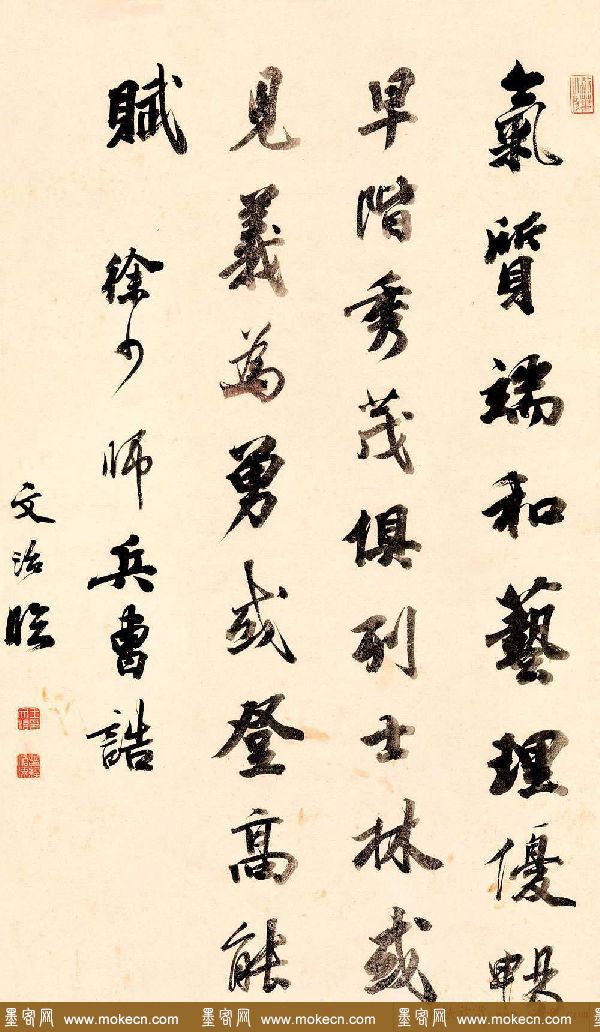 氣質端和藝理優暢
早階秀茂俱列士林或
見義為勇或登高能
賦 徐少師兵曹誥
文治臨
墨客网 www.mokecn.com 墨客网 www.mokecn.com 墨客网 www.mokecn.com